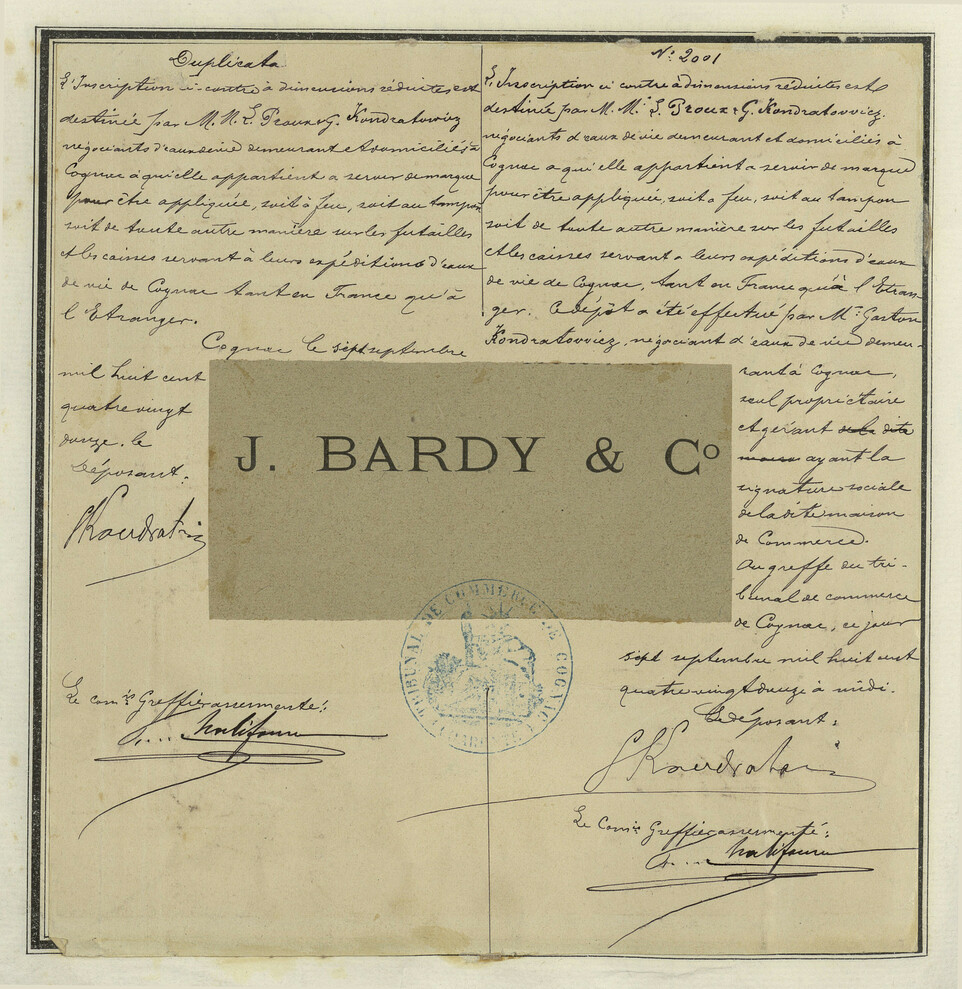 Duplicata
L'Inscription ci-contre à dimensions réduites est
destinée par M.M. L. Proux & G. Kondratowicz
négociants d'eaux de vie demeurant et domiciliés à
Cognac à qu'elle appartient a servir de marque
pour être appliquée, soit à feu, soit au tampon
soit de toute autre manière sur les futailles
et les caisses servant à leurs expéditions d'eaux
de vie de Cognac tant en France qu'à
l'Etranger.
Cognac le sept septembre
mil huit cent
quatre vingt
douze. le
Déposant:
Le com.is Greffier assermenté:
No: 2001
L'Inscription ci contre à dimensions réduites est
destinée par M. M. L. Proux & G. Kondratovicz.
négociants d'eaux de vie demeurant et domiciliés à
Cognac a qu'elle appartient a servir de marque
pour être appliquée, soit a feu, soit au tampon
soit de toute autre manière sur les futailles
et les caisses servant a leurs expéditions d'eaux
de vie de Cognac, tant en France qu'à l'Etran-
ger. Ce dépôt a été effectué par Mr. Gaston
Kondratovicz, négociant d'eaux de vie demeu-
rant à Cognac,
seul propriétaire
et gérant de la dite
maison ayant la
signature sociale
de la dite maison
de Commerce.
Au greffe du tri-
bunal de commerce
de Cognac, ce jour
sept septembre mil huit cent
quatre vingt douze à midi.
Le déposant:
Le Com.is Greffier assermenté:
J. BARDY & Co
TRIBUNAL DE COMMERCE DE COGNAC